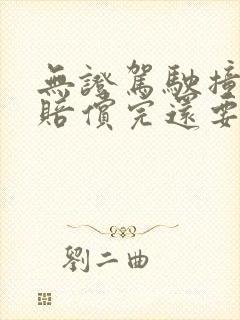 無證駕駛撞
賠償完還要
劉二曲